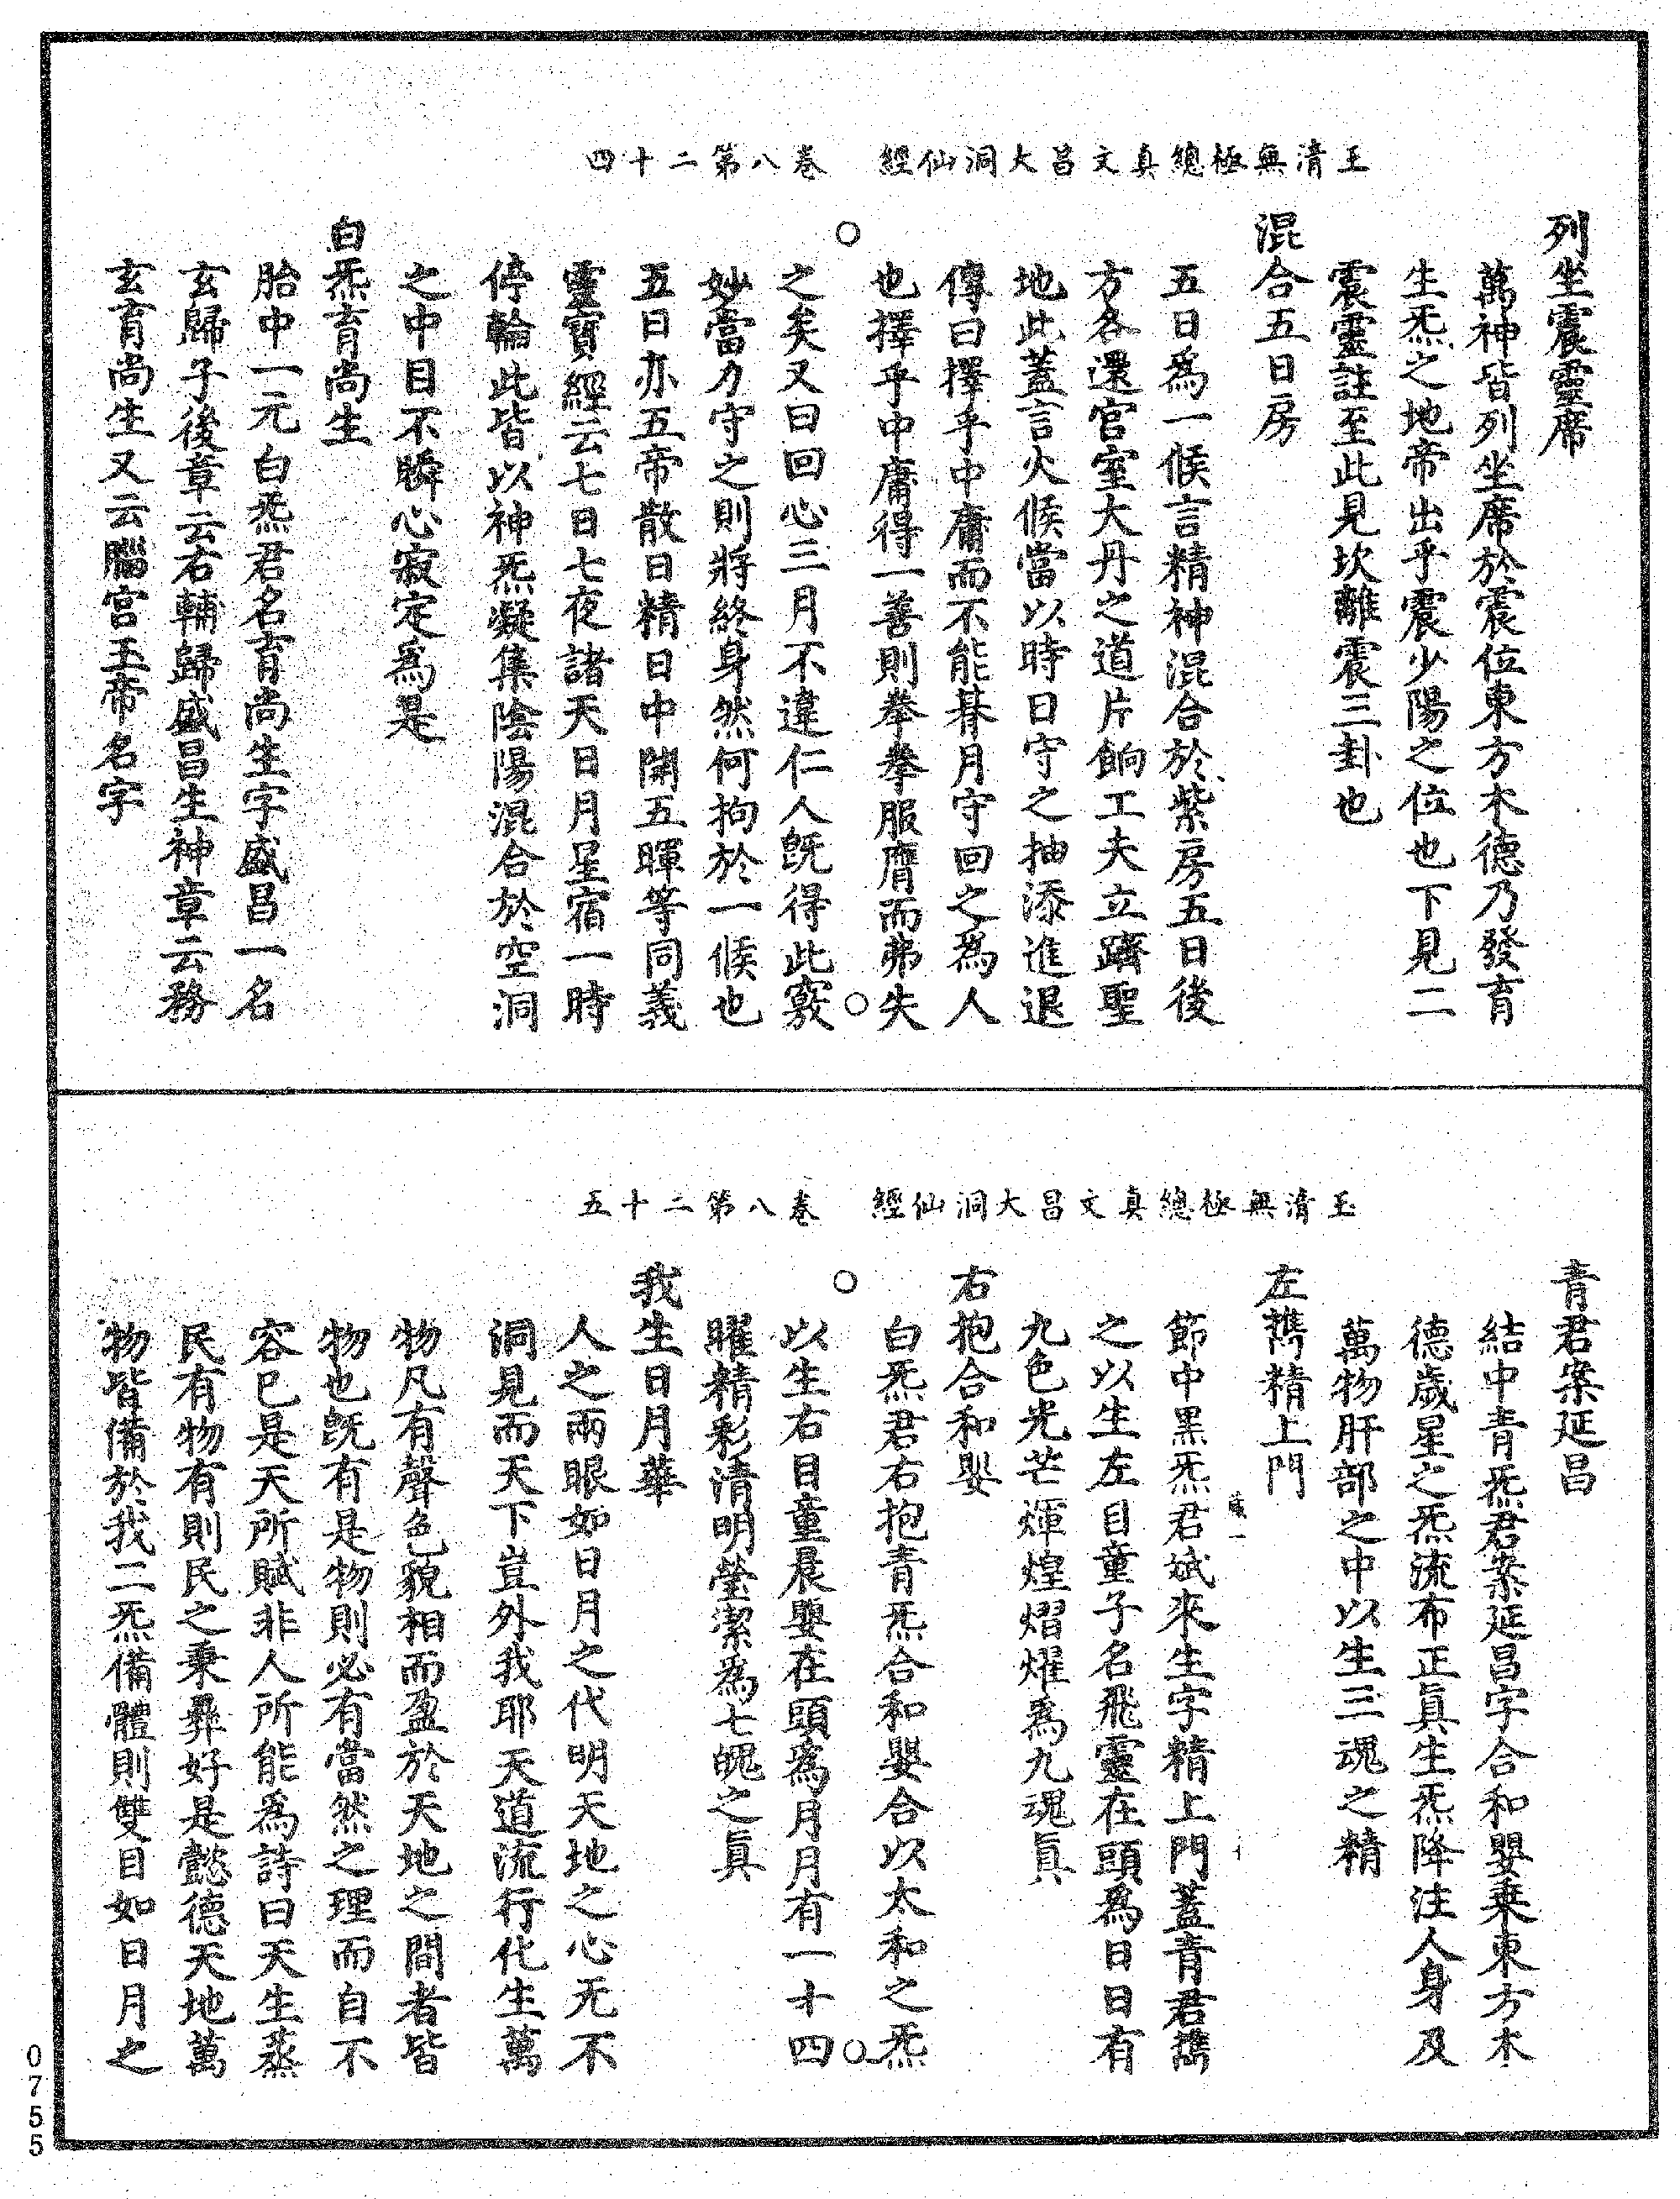 玉清無極總真文昌大洞仙經　卷八第二十四
列坐震靈席
萬神皆列坐席於震位東方木德乃發育
生炁之地帝出乎震少陽之位也下見二
震靈註至此見坎離震三卦也
混合五日房
五日爲一候言精神混合於紫房五日後
方各還宮室大丹之道片餉工夫立躋聖
地此蓋言火候當以時日守之抽添進退
傳曰擇乎中庸而不能朞月守回之爲人
也擇乎中庸得一善則拳拳服膺而弗失
之矣又曰回心三月不違仁人既得此竅
妙當力守之則將終身然何拘於一候也
五日亦五帝散日精日中開五暉等同義
靈寶經云七日七夜諸天日月星宿一時
停輪此皆以神炁凝集陰陽混合於空洞
之中目不瞬心寂定爲是
白炁育尚生
胎中一元白炁君名育尚生字盛昌一名
玄歸子後章云右輔歸盛昌生神章云務
玄育尚生又云腦宮玉帝名字
玉清無極總真文昌大洞仙經　卷八第二十五
青君案延昌
結中青炁君案延昌字合和嬰乘東方木
德歲星之炁流布正眞生炁降注人身及
萬物肝部之中以生三魂之精
左攜精上門
節中黑炁君斌來生字精上門蓋青君攜
之以生左目童子名飛靈在頭爲日日有
九色光芒煇煌熠燿爲九魂眞
右抱合和嬰
白炁君右抱青炁合和嬰合以太和之炁
以生右目童晨嬰在頭爲月月有一十四
曜精彩清明瑩潔爲七魄之眞
我生日月華
人之兩眼如日月之代明天地之心无不
洞見而天下豈外我耶天道流行化生萬
物凡有聲色貌相而盈於天地之間者皆
物也既有是物則必有當然之理而自不
容已是天所賦非人所能爲詩曰天生蒸
民有物有則民之秉彝好是懿德天地萬
物皆備於我二炁備體則雙目如日月之
0755